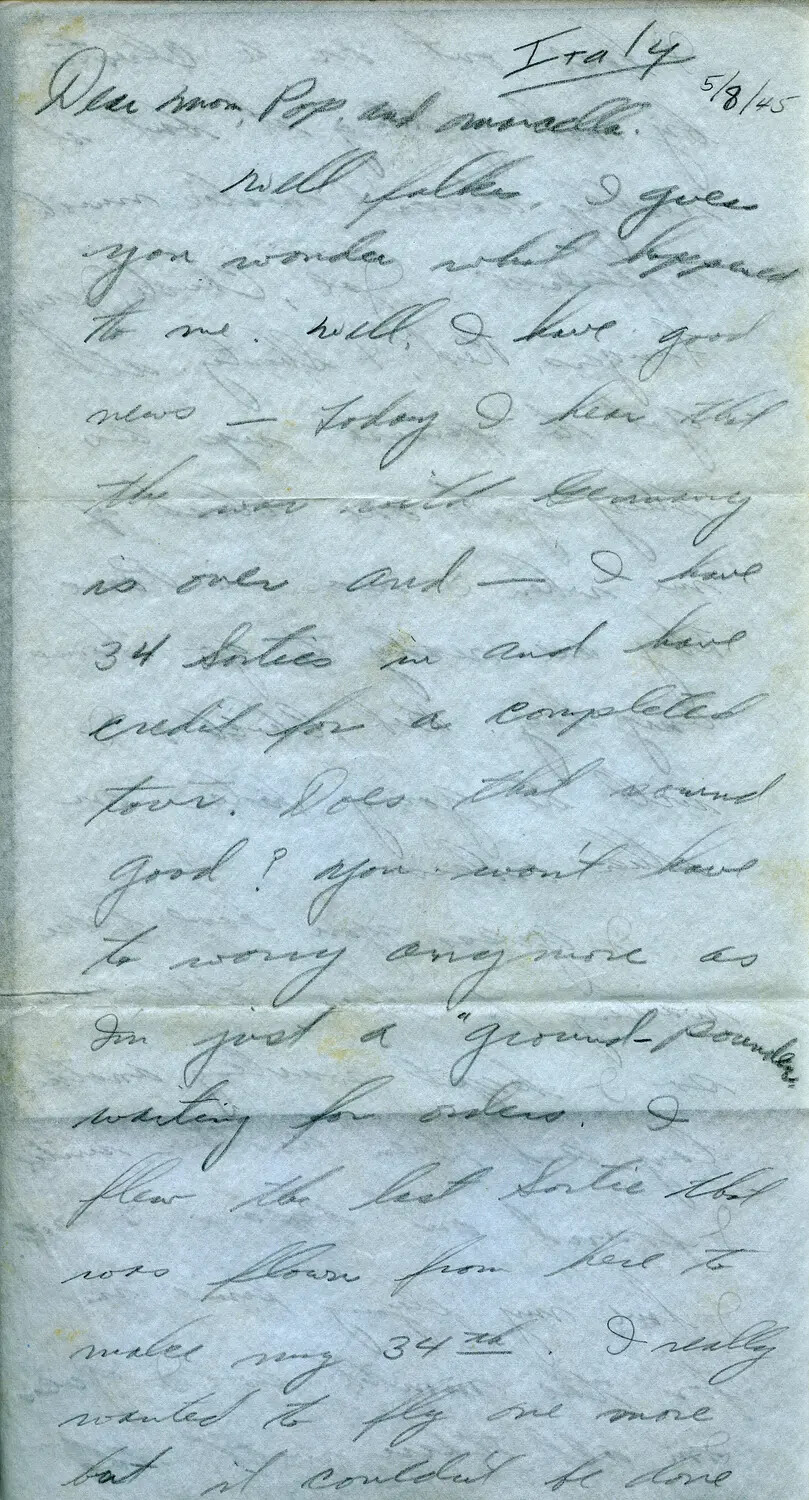 Italy
5/8/45
Dear Mom, Pop, and Marcella.
Well folks, I guess
you wonder what happened
to me. Well, I have good
news — today I hear that
the war with Germany
is over and — I have
34 Sorties in and have
credit for a completed
tour. Does that sound
good? You won't have
to worry anymore as
I'm just a "ground-pounder"
waiting for orders. I
flew the last Sortie that
was flown from here to
make my 34th. I really
wanted to fly one more
but it couldn't be done